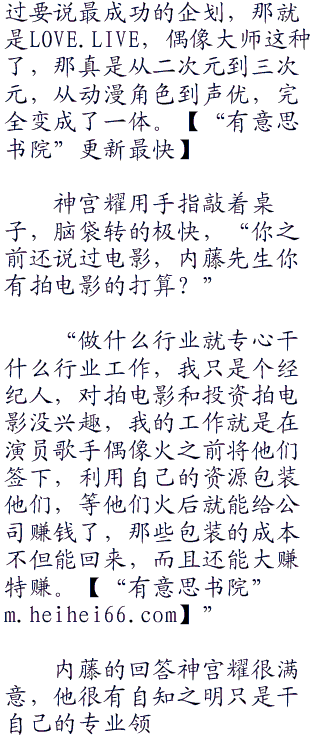 过要说最成功的企划，那就
是LOVE.LIVE，偶像大师这种
了，那真是从二次元到三次
元，从动漫角色到声优，完
全变成了一体。【“有意思
书院”更新最快】
神宫耀用手指敲着桌
子，脑袋转的极快，“你之
前还说过电影，内藤先生你
有拍电影的打算？”
“做什么行业就专心干
什么行业工作，我只是个经
纪人，对拍电影和投资拍电
影没兴趣，我的工作就是在
演员歌手偶像火之前将他们
签下，利用自己的资源包装
他们，等他们火后就能给公
司赚钱了，那些包装的成本
不但能回来，而且还能大赚
特赚。【“有意思书院”
m.heihei66.com】”
内藤的回答神宫耀很满
意，他很有自知之明只是干
自己的专业领